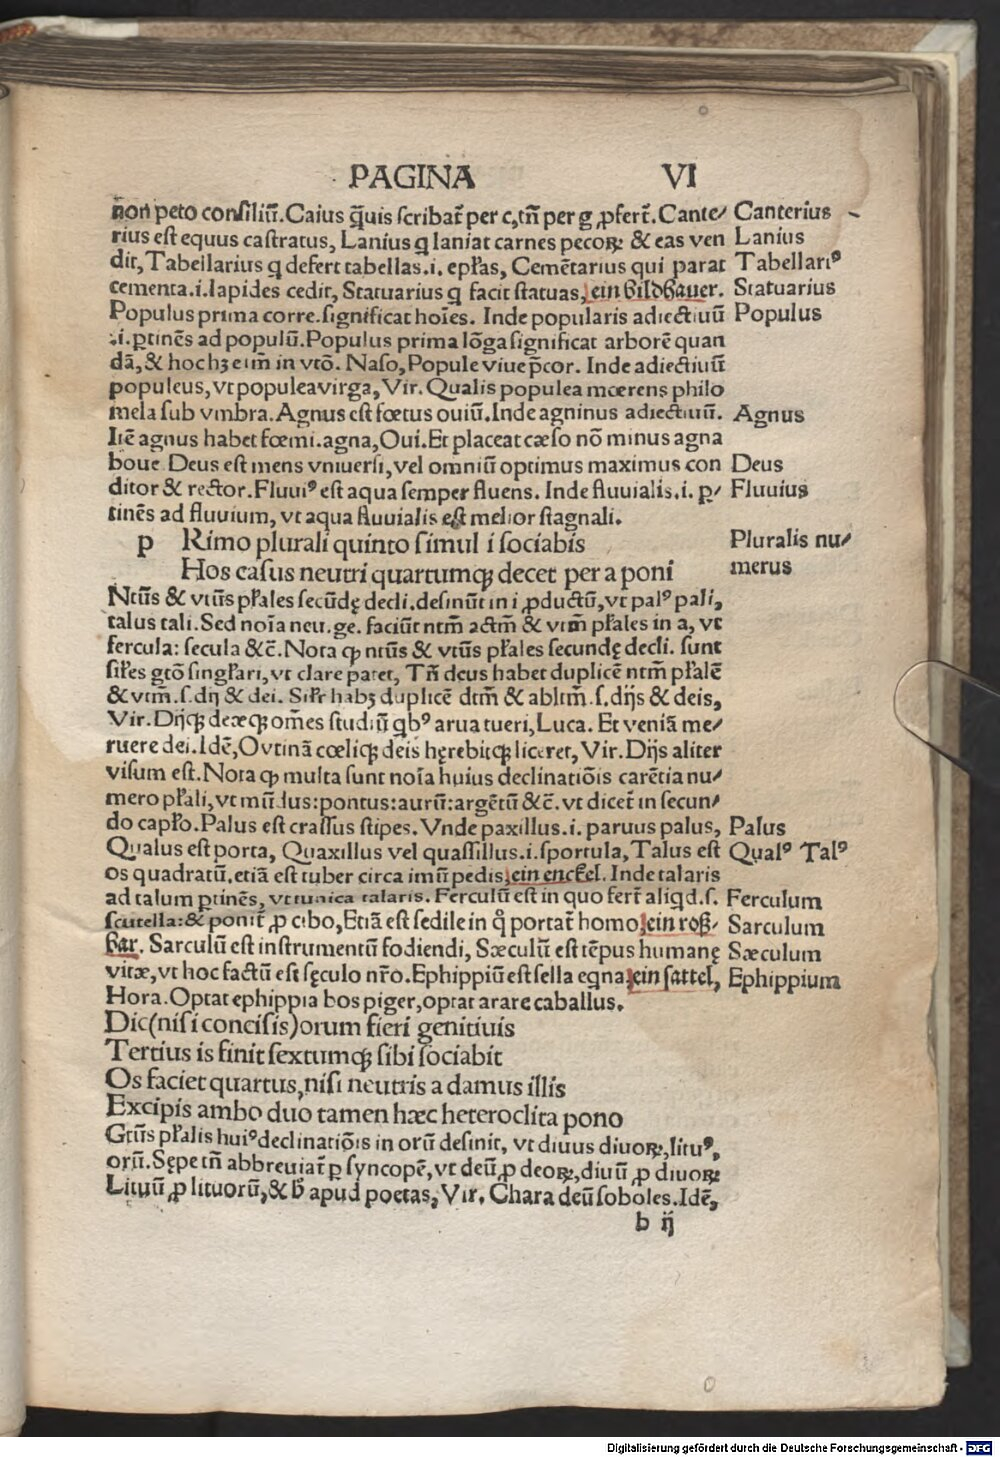 PAGINA VI
non peto consiliū. Caius q̄uis scribat᷑ per c, tn̄ per g ꝓfert᷑. Cante/ Canterius
rius est equus castratus, Lanius q̄ laniat carnes pecoꝝ & eas ven Lanius
dit, Tabellarius q̄ defert tabellas .i. epl̄as, Cemētarius qui parat Tabellariꝰ
cementa .i. lapides cedit, Statuarius q̄ facit statuas, ein bildhauer. Statuarius
Populus prima corre. significat hoīes. Inde popularis adiectiuū Populus
.i. ꝑtinēs ad populū. Populus prima lōga significat arborē quan
dā, & hocꝫ eīm in vtō. Naso, Popule viue p̄cor. Inde adiectiuū
populeus, vt populea virga, Vir. Qualis populea mœrens philo
mela sub vmbra. Agnus est fœtus ouiū. Inde agninus adiectiuū. Agnus
Itē agnus habet fœmi. agna, Oui. Et placeat cæso nō minus agna
boue. Deus est mens vniuersi, vel omniū optimus maximus con Deus
ditor & rector. Fluuiꝰ est aqua semper fluens. Inde fluuialis .i. ꝑ/ Fluuius
tinēs ad fluuium, vt aqua fluuialis est melior stagnali.
p Rimo plurali quinto simul i sociabis Pluralis nu/
Hos casus neutri quartumqꝫ decet per a poni merus
Ntūs & vtūs pl̄ales secūdę decli. desinūt in i ꝓductū, vt palꝰ pali,
talus tali. Sed noīa neu. ge. faciūt ntm̄ actm̄ & vtm̄ pl̄ales in a, vt
fercula: secula &c̄. Nota ꝙ ntūs & vtūs pl̄ales secundę decli. sunt
sil̄es gtō singl̄ari, vt clare patet, Tn̄ deus habet duplicē ntm̄ pl̄alē
& vtm̄ .s. dij & dei. Sil̄r habꝫ duplicē dtm̄ & abltm̄ .s. dijs & deis,
Vir. Dijqꝫ deæqꝫ om̄es studiū qbꝰ arua tueri, Luca. Et veniā me/
ruere dei. Idē, Ovtinā cœliqꝫ deis hęrebitqꝫ liceret, Vir. Dijs aliter
visum est. Nota ꝙ multa sunt noīa huius declinatiōis carētia nu/
mero pl̄ali, vt mūdus: pontus: aurū: argētū &c̄. vt dicet᷑ in secun/
do capl̄o. Palus est crassus stipes. Vnde paxillus .i. paruus palus, Palus
Qualus est porta, Quaxillus vel quassillus .i. sportula, Talus est Qualꝰ Talꝰ
os quadratū. etiā est tuber circa imū pedis, ein enckel. Inde talaris
ad talum ꝑtinēs, vt tunica talaris. Ferculū est in quo fert᷑ aliqd .s. Ferculum
scutella: & ponit᷑ ꝓ cibo, Etiā est sedile in q̊ portat᷑ homo, ein roß/ Sarculum
bar. Sarculū est instrumentū fodiendi, Sæculū est tēpus humanę Sæculum
vitæ, vt hoc factū est sęculo nr̄o. Ephippiū est sella eqna, ein sattel, Ephippium
Hora. Optat ephippia bos piger, optat arare caballus.
Dic(nisi concisis)orum fieri genitiuis
Tertius is finit sextumqꝫ sibi sociabit
Os faciet quartus, nisi neutris a damus illis
Excipis ambo duo tamen hæc heteroclita pono
Gtūs pl̄alis huiꝰ declinatiōis in orū desinit, vt diuus diuoꝝ, lituꝰ,
orū. Sępe tn̄ abbreuiat᷑ ꝑ syncopē, vt deū ꝓ deoꝝ, diuū ꝓ diuoꝝ
Lituū ꝓ lituorū, & h̄ apud poetas, Vir. Chara deū soboles. Idē,
b ij
Digitalisierung gefördert durch die Deutsche Forschungsgemeinschaft - DFG